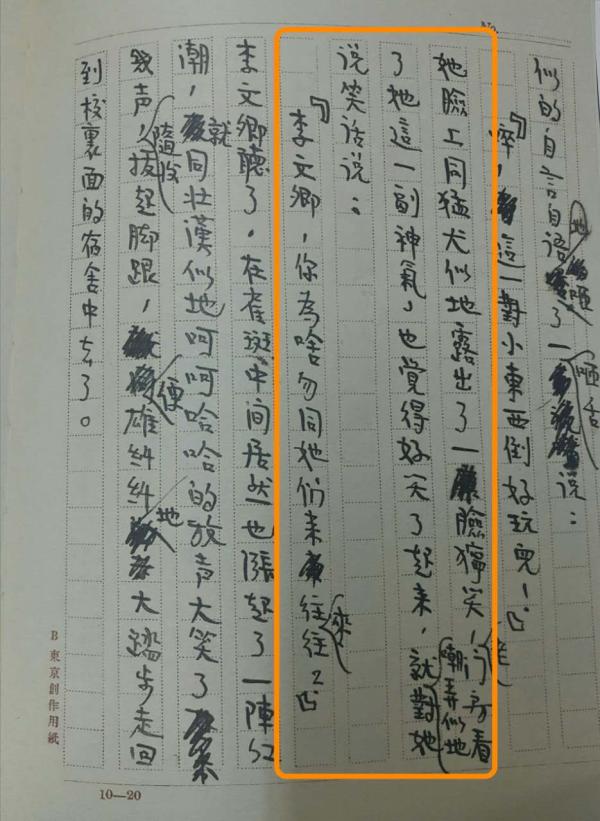 No.
似的自言自语地咂了一咂舌说：
『啐，這一對小東西倒好玩兒！』
她臉上同猛犬似地露出了一臉獰笑，门房看
了她這一副神氣，也覺得好笑了起来，就嘲弄似地對她
说笑话说：
『李文卿，你為啥勿同她们来往来往？』
李文卿聽了，在雀斑中间居然也漲起了一陣红
潮，就同壮漢似地呵呵哈哈的放声大笑了
幾声，隨後拔起脚跟，便雄糾糾地大踏步走回
到校裏面的宿舍中去了。
B 東京創作用紙
10—20